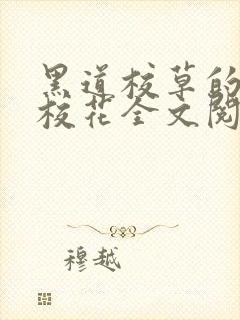 黑道校草的
校花全文阅
穆越